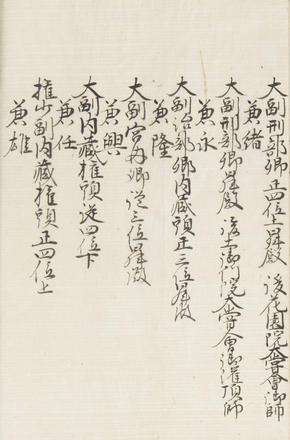 大副刑部卿正四位上昇殿 後花園院大嘗會御師
兼緒
大副刑部卿昇殿 後土御門院大嘗會御灌頂師
兼永
大副治部卿内蔵頭正三位昇殿
兼隆
大副宮内卿従三位昇殿
兼興
大副内蔵権頭従四位下
兼任
権少副内蔵権頭正四位上
兼雄